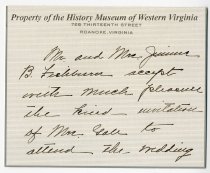 Property of the History Museum of Western Virginia
ROANOKE, VIRGINIA
Mr. and Mrs. Junius
B. Fishburn accept
with much pleasure
the kind invitation
of Mrs. Gale to
attend the wedding